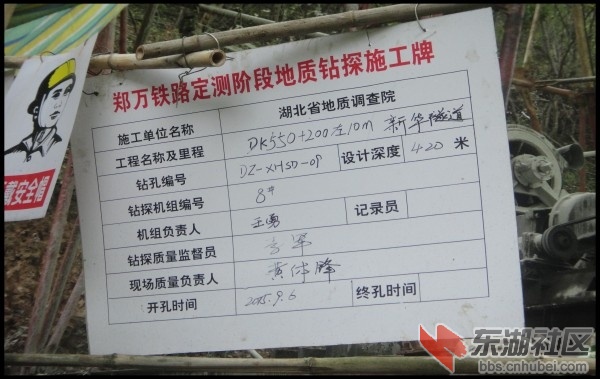 郑万铁路定测阶段地质钻探施工牌
施工单位名称 湖北省地质调查院
工程名称及里程 DK550+200左10m 新华隧道
钻孔编号 DZ-XHSD-09 设计深度 420 米
钻探机组编号 8#
机组负责人 王勇 记录员
钻探质量监督员
现场质量负责人 黄伟峰
开孔时间 2015.9.6 终孔时间
戴安全帽
东湖社区
bbs.cnhubei.com